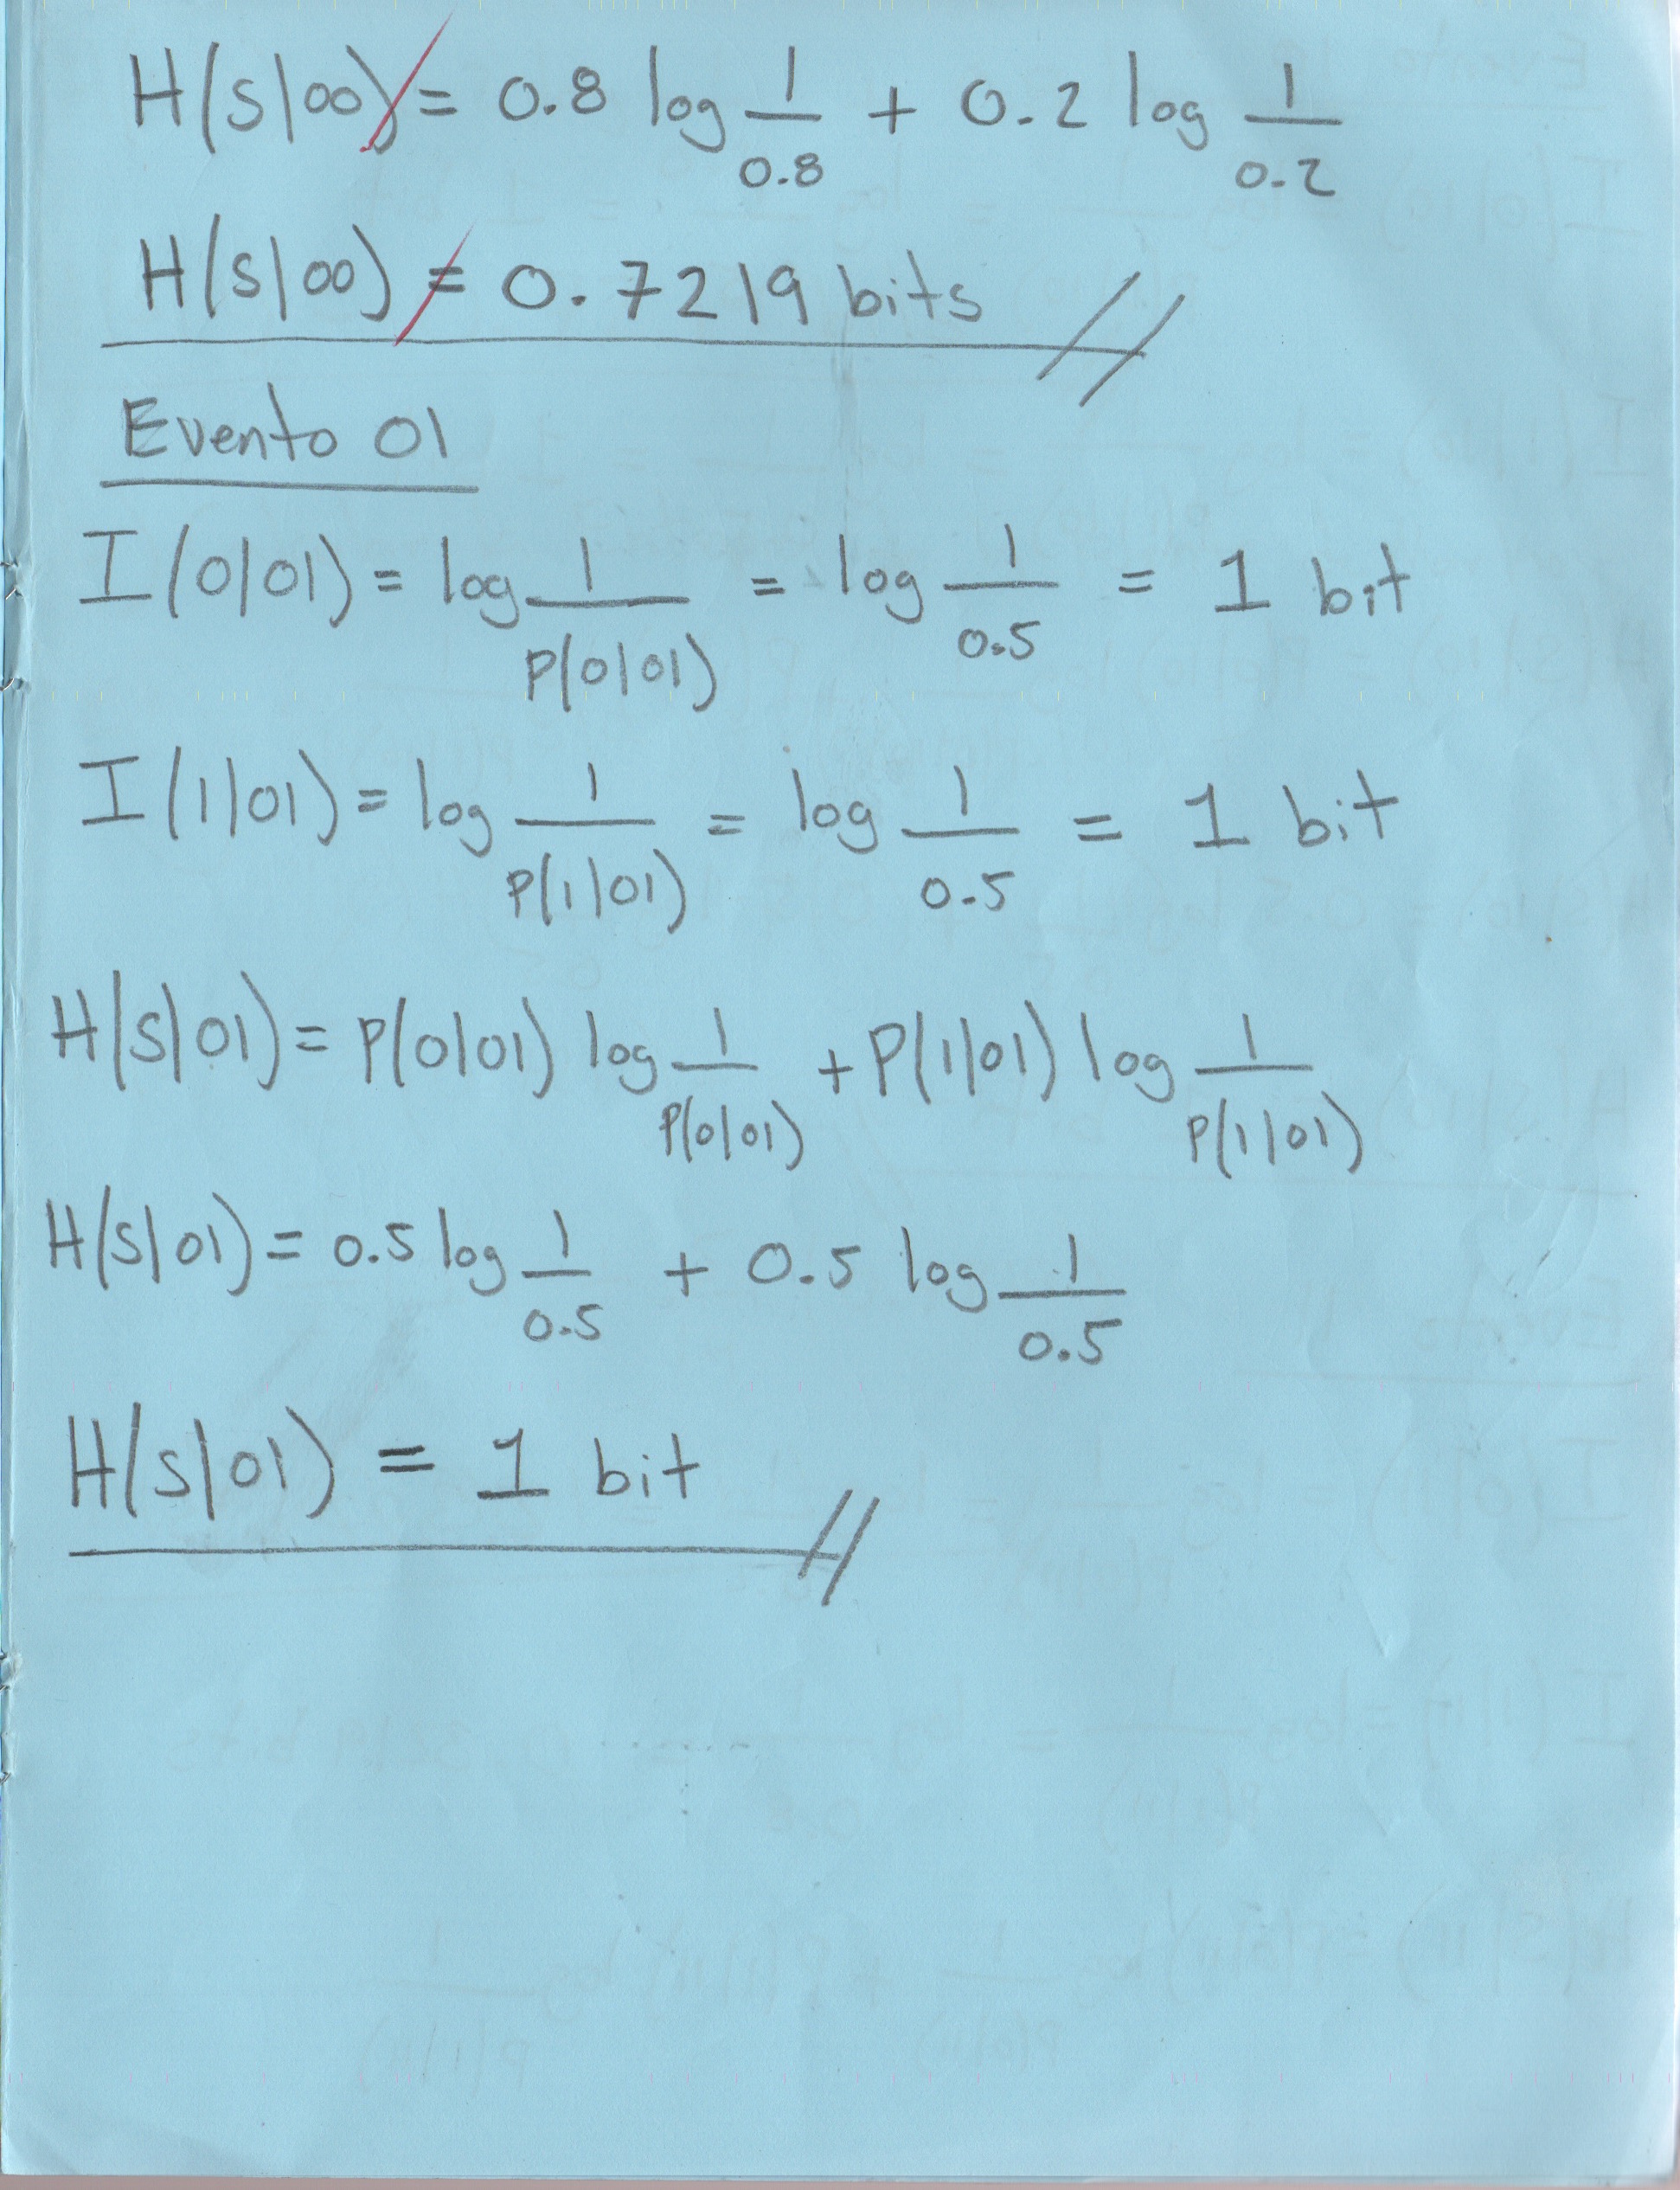 H(S|00) = 0.8 log 1/0.8 + 0.2 log 1/0.2
H(S|00) = 0.7219 bits
Evento 01
I(0|01) = log 1/P(0|01) = log 1/0.5 = 1 bit
I(1|01) = log 1/P(1|01) = log 1/0.5 = 1 bit
H(S|01) = P(0|01) log 1/P(0|01) + P(1|01) log 1/P(1|01)
H(S|01) = 0.5 log 1/0.5 + 0.5 log 1/0.5
H(S|01) = 1 bit